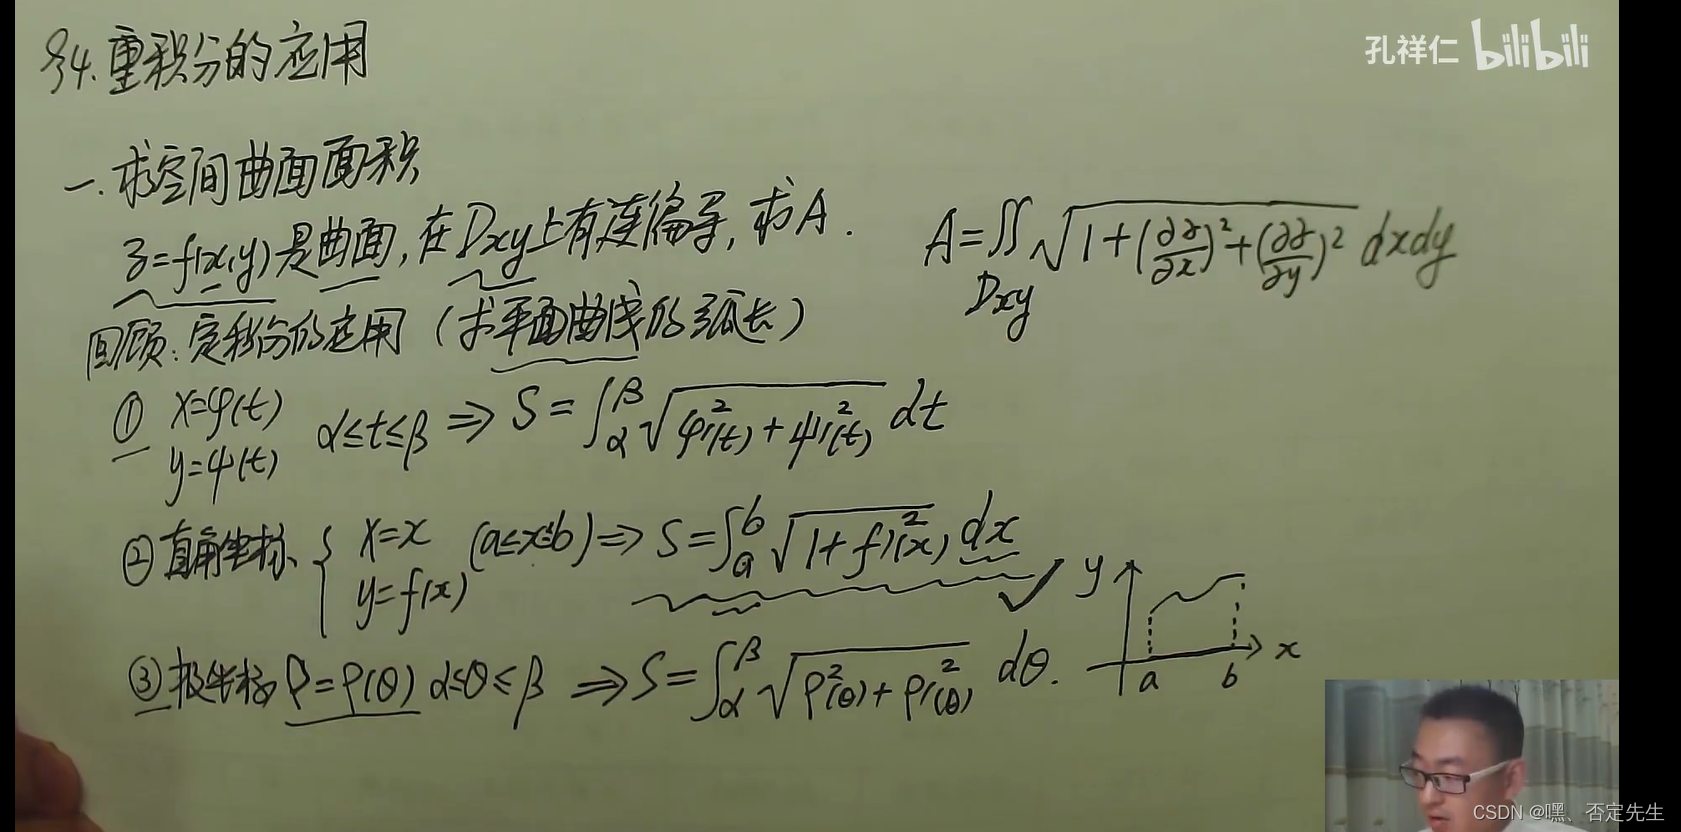 §4.重积分的应用
孔祥仁 bilibili
一.求空间曲面面积
z=f(x,y)是曲面,在Dxy上有连偏导,求A.
A=∬√1+(∂z/∂x)²+(∂z/∂y)² dxdy
Dxy
回顾:定积分的应用(求平面曲线的弧长)
① x=φ(t)
y=ψ(t)
α≤t≤β ⇒ S=∫αβ√φ'²(t)+ψ'²(t) dt
②直角坐标 { x=x
y=f(x)
(a≤x≤b)⇒ S=∫ab√1+f'²(x) dx
③极坐标 ρ=ρ(θ) α≤θ≤β ⇒ S=∫αβ√ρ²(θ)+ρ'²(θ) dθ.
y
x
a
b
CSDN @嘿、否定先生